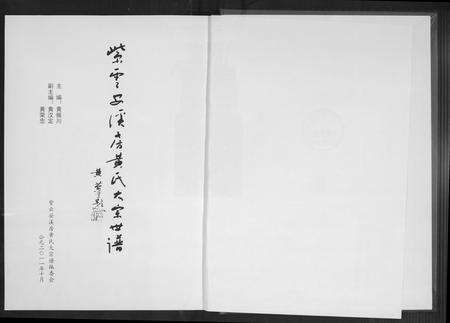 紫云安溪房黄氏大宗世谱
主　编：黄振川
副主编：黄汉忠
黄荣忠
紫云安溪房黄氏大宗谱编委会
公元二〇一一年十月